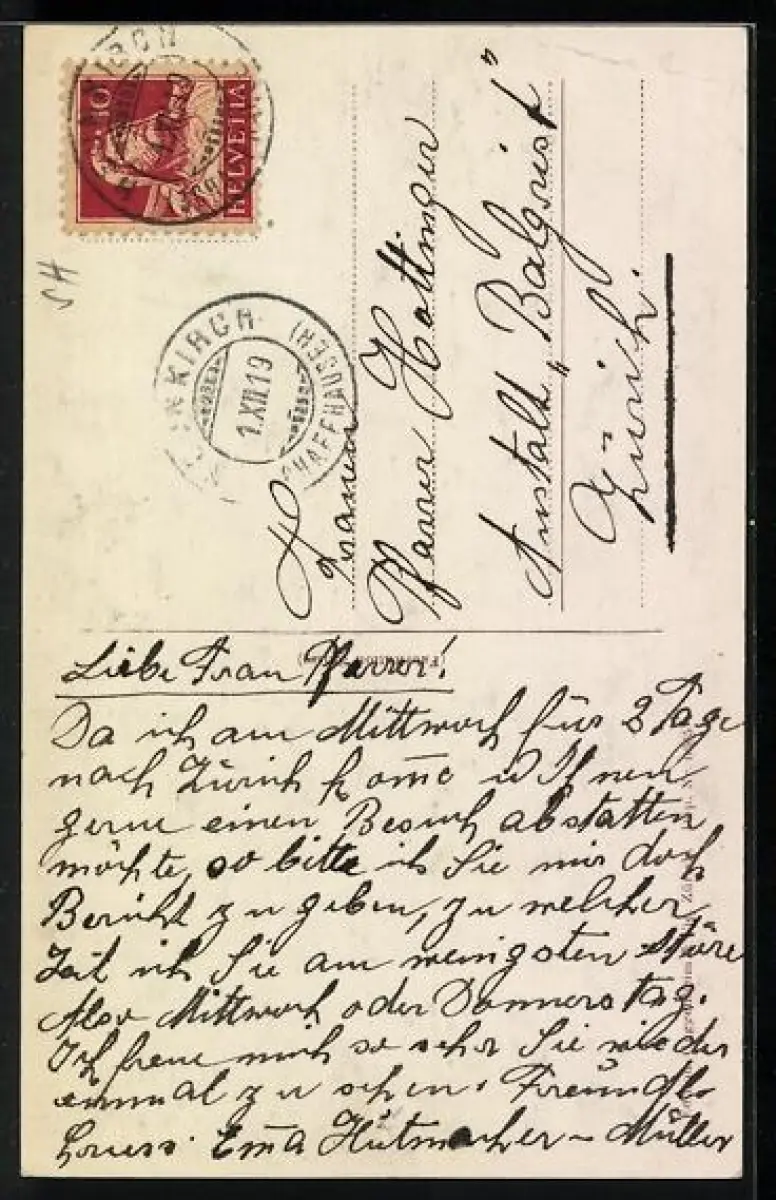 10
HELVETIA
SH
KIRCH
(SCHAFFHAUSEN)
1.XII.19
Frau
Pfarrer Hottinger
Anstalt „Balgrist"
Zürich.
Liebe Frau Pfarrer!
Da ich am Mittwoch für 2 Tage
nach Zürich kom̄e u Ihnen
gerne einen Besuch abstatten
möchte, so bitte ich Sie mir doch
Bericht zu geben, zu welcher
Zeit ich Sie am wenigsten störe
Also Mittwoch oder Donnerstag.
Ich freue mich so sehr Sie wieder
einmal zu sehen. Freundl.
Gruss. Em̄a Hutmacher-Müller